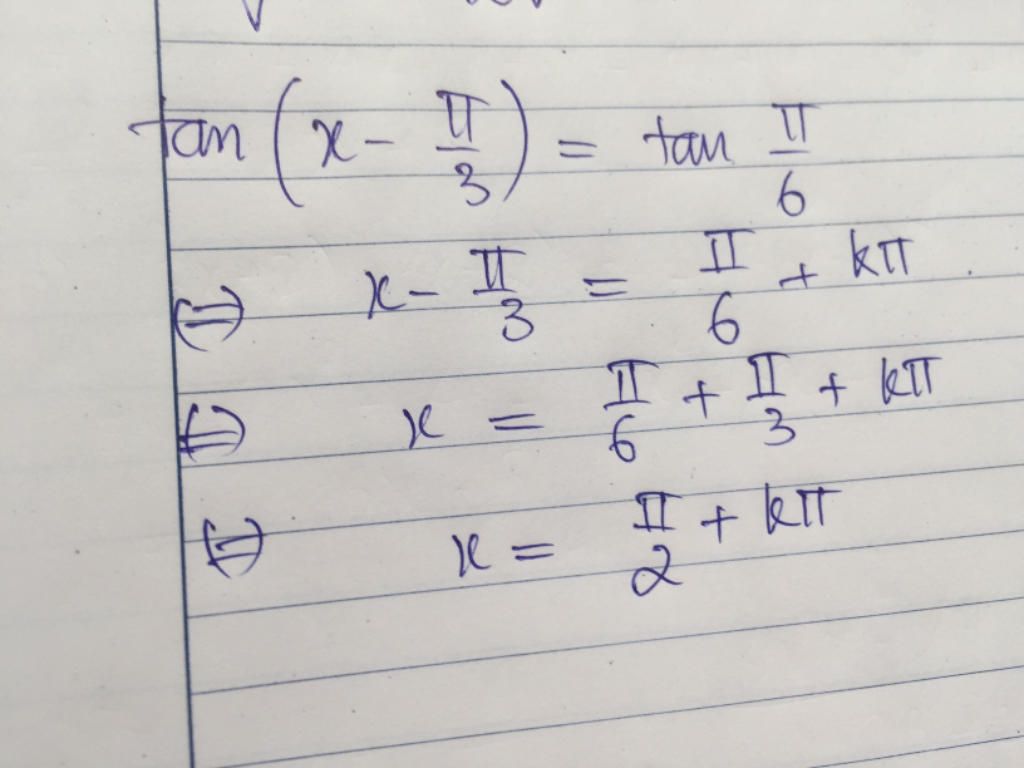 tan (x - π/3) = tan π/6
⇔ x - π/3 = π/6 + kπ
⇔ x = π/6 + π/3 + kπ
⇔ x = π/2 + kπ